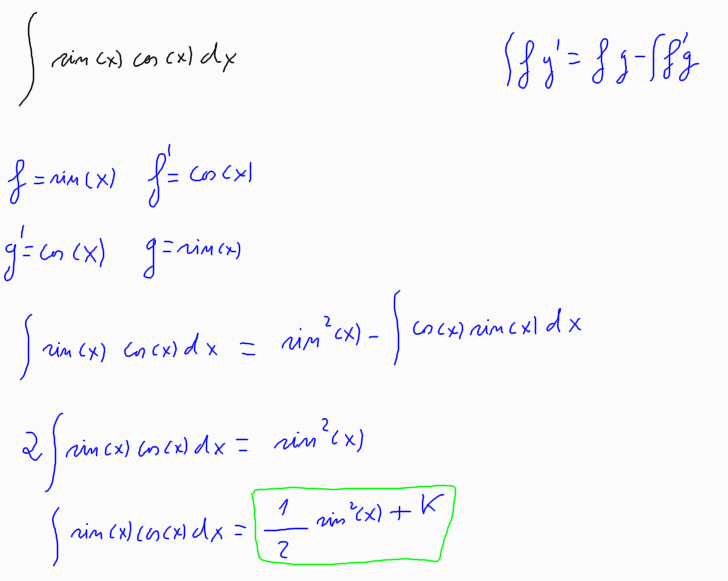 ∫ sin(x) cos(x) dx
∫fg' = fg-∫f'g
f = sin(x) f' = cos(x)
g' = cos(x) g = sin(x)
∫ sin(x) cos(x) dx = sin²(x) - ∫ cos(x) sin(x) dx
2∫ sin(x) cos(x) dx = sin²(x)
∫ sin(x) cos(x) dx = 1/2 sin²(x) + K